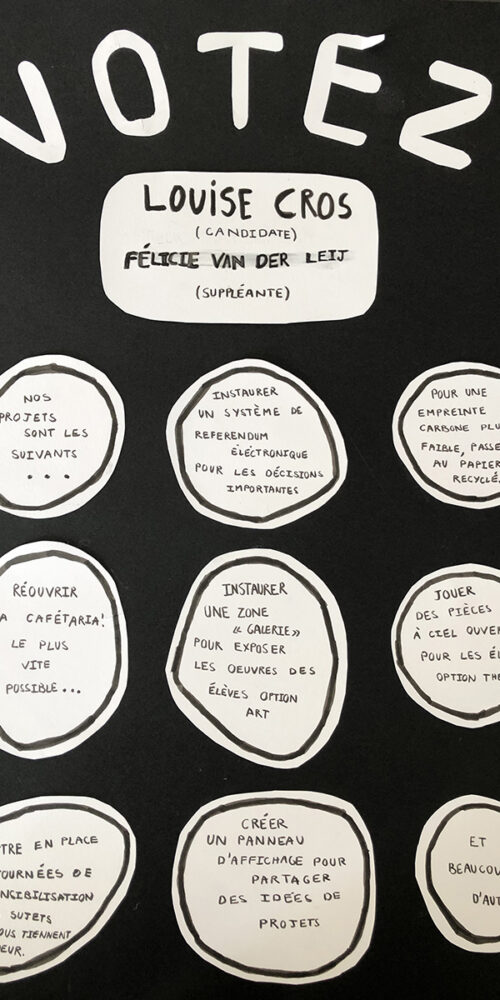 VOTEZ
LOUISE CROS
(CANDIDATE)
FÉLICIE VAN DER LEIJ
(SUPPLÉANTE)
NOS
PROJETS
SONT LES
SUIVANTS
...
INSTAURER
UN SYSTÈME DE
REFERENDUM
ÉLÉCTRONIQUE
POUR LES DÉCISIONS
IMPORTANTES
POUR UNE
EMPREINTE
CARBONE PLU
FAIBLE, PASSE
AU PAPIER
RECYCLÉ.
RÉOUVRIR
A CAFÉTARIA!
LE PLUS
VITE
POSSIBLE...
INSTAURER
UNE ZONE
« GALERIE »
POUR EXPOSER
LES OEUVRES DES
ÉLÈVES OPTION
ART
JOUER
DES PIÈCES
À CIEL OUVER
POUR LES ÉL
OPTION THE
TRE EN PLACE
OURNÉES DE
NCIBILISATION
SUJETS
OUS TIENNENT
EUR.
CRÉER
UN PANNEAU
D'AFFICHAGE POUR
PARTAGER
DES IDÉES DE
PROJETS
ET
BEAUCOU
D'AUT